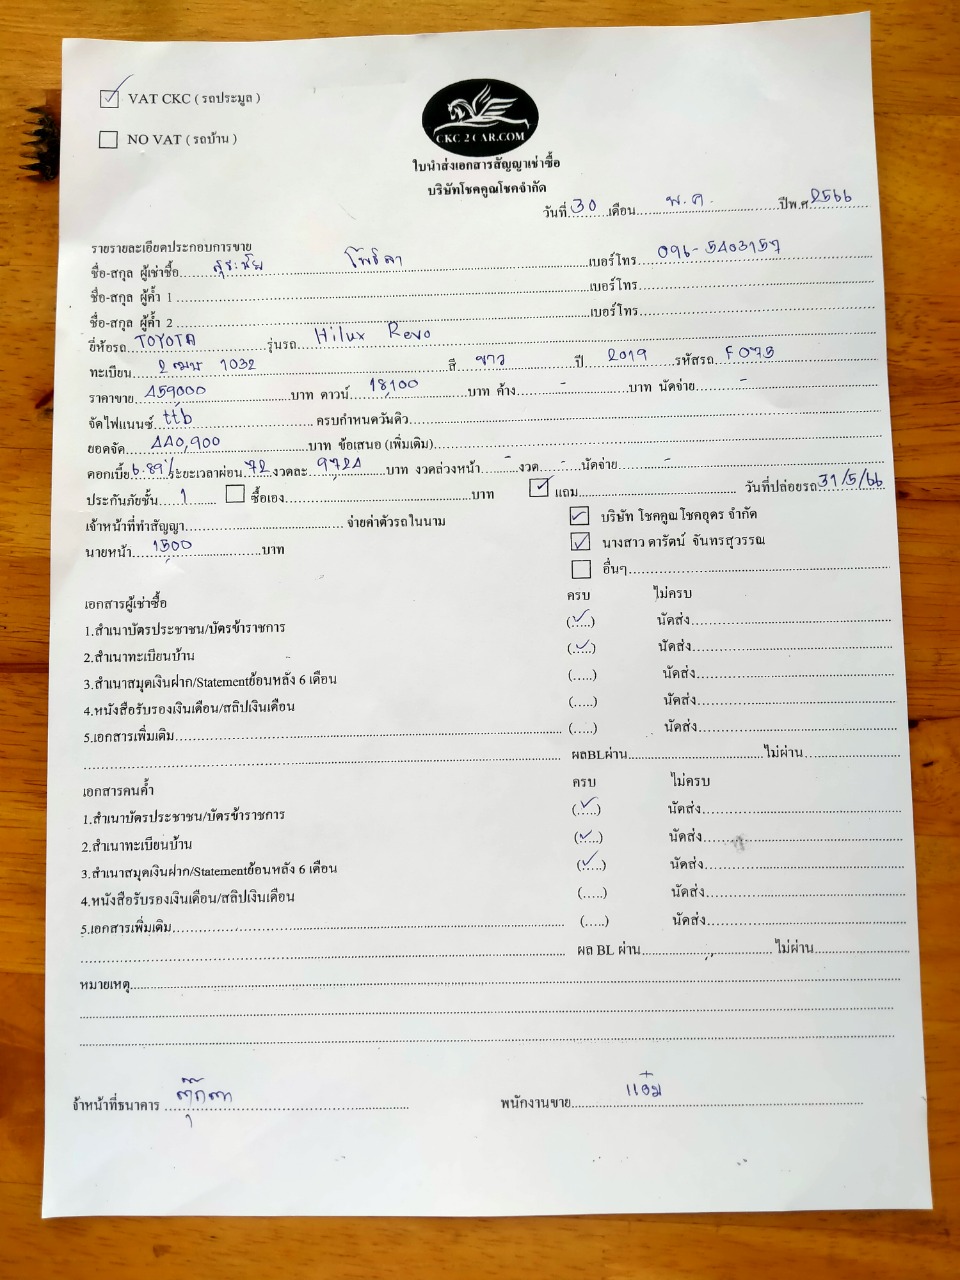 VAT CKC ( รถประมูล )
NO VAT ( รถบ้าน )
CKC 2 CAR.COM
ใบนำส่งเอกสารสัญญาเช่าซื้อ
บริษัทโชคคูณโชคจำกัด
วันที่ 30 เดือน พ.ค. ปีพ.ศ 2566
รายรายละเอียดประกอบการขาย
ชื่อ-สกุล ผู้เช่าซื้อ สุระชัย โพธิลา เบอร์โทร 096-5403157
ชื่อ-สกุล ผู้ค้ำ 1 เบอร์โทร
ชื่อ-สกุล ผู้ค้ำ 2 เบอร์โทร
ยี่ห้อรถ TOYOTA รุ่นรถ Hilux Revo
ทะเบียน 2 ฒฆ 1032 สี ขาว ปี 2019 รหัสรถ F073
ราคาขาย 459000 บาท ดาวน์ 18,100 บาท ค้าง - บาท นัดจ่าย -
จัดไฟแนนซ์ ttb ครบกำหนดวันดิว
ยอดจัด 440,900 บาท ข้อเสนอ (เพิ่มเติม)
ดอกเบี้ย 6.89% ระยะเวลาผ่อน 72 งวดละ 9,724 บาท งวดล่วงหน้า - งวด - นัดจ่าย -
ประกันภัยชั้น 1 ซื้อเอง บาท แถม วันที่ปล่อยรถ 31/5/66
เจ้าหน้าที่ทำสัญญา จ่ายค่าตัวรถในนาม บริษัท โชคคูณโชคอุดร จำกัด
นายหน้า 1,500 บาท นางสาว ดารัตน์ จันทรสุวรรณ
อื่นๆ
เอกสารผู้เช่าซื้อ ครบ ไม่ครบ
1.สำเนาบัตรประชาชน/บัตรข้าราชการ (.....) นัดส่ง
2.สำเนาทะเบียนบ้าน (.....) นัดส่ง
3.สำเนาสมุดเงินฝาก/Statementย้อนหลัง 6 เดือน (.....) นัดส่ง
4.หนังสือรับรองเงินเดือน/สลิปเงินเดือน (.....) นัดส่ง
5.เอกสารเพิ่มเติม (.....) นัดส่ง
ผลBLผ่าน ไม่ผ่าน
เอกสารคนค้ำ ครบ ไม่ครบ
1.สำเนาบัตรประชาชน/บัตรข้าราชการ (.....) นัดส่ง
2.สำเนาทะเบียนบ้าน (.....) นัดส่ง
3.สำเนาสมุดเงินฝาก/Statementย้อนหลัง 6 เดือน (.....) นัดส่ง
4.หนังสือรับรองเงินเดือน/สลิปเงินเดือน (.....) นัดส่ง
5.เอกสารเพิ่มเติม (.....) นัดส่ง
ผล BL ผ่าน ไม่ผ่าน
หมายเหตุ
จ้าหน้าที่ธนาคาร ตุ๊กตา พนักงานขาย แอ๋ม